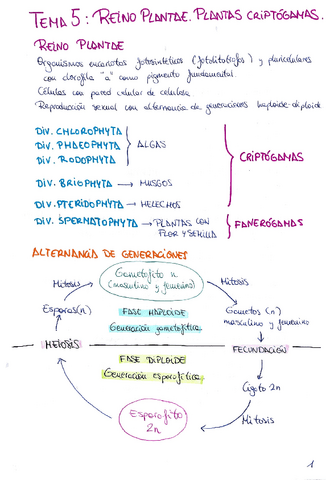 TEMA 5: REINO PLANTAE. PLANTAS CRIPTÓGAMAS.
REINO PLANTAE
Organismos eucariotas fotosintéticos (fotolitotrofos) y pluricelulares
con clorofila "a" como pigmento fundamental.
Células con pared celular de celulosa
Reproducción sexual con alternancia de generaciones haploide-diploide
DIV. CHLOROPHYTA
DIV. PHAEOPHYTA
DIV. RODOPHYTA
ALGAS
DIV. BRIOPHYTA → MUSGOS
DIV. PTERIDOPHYTA → HELECHOS
CRIPTÓGAMAS
DIV. SPERMATOPHYTA → PLANTAS CON
FLOR Y SEMILLA
FANERÓGAMAS
ALTERNANCIA DE GENERACIONES
Gametofito n
(masculino y femenino)
Mitosis
Mitosis
Esporas (n)
Gametos (n)
masculino y femenino
FASE HAPLOIDE
Generación gametofítica
MEIOSIS
FECUNDACIÓN
FASE DIPLOIDE
Generación esporofítica
Cigoto 2n
Mitosis
Esporofito
2n
1